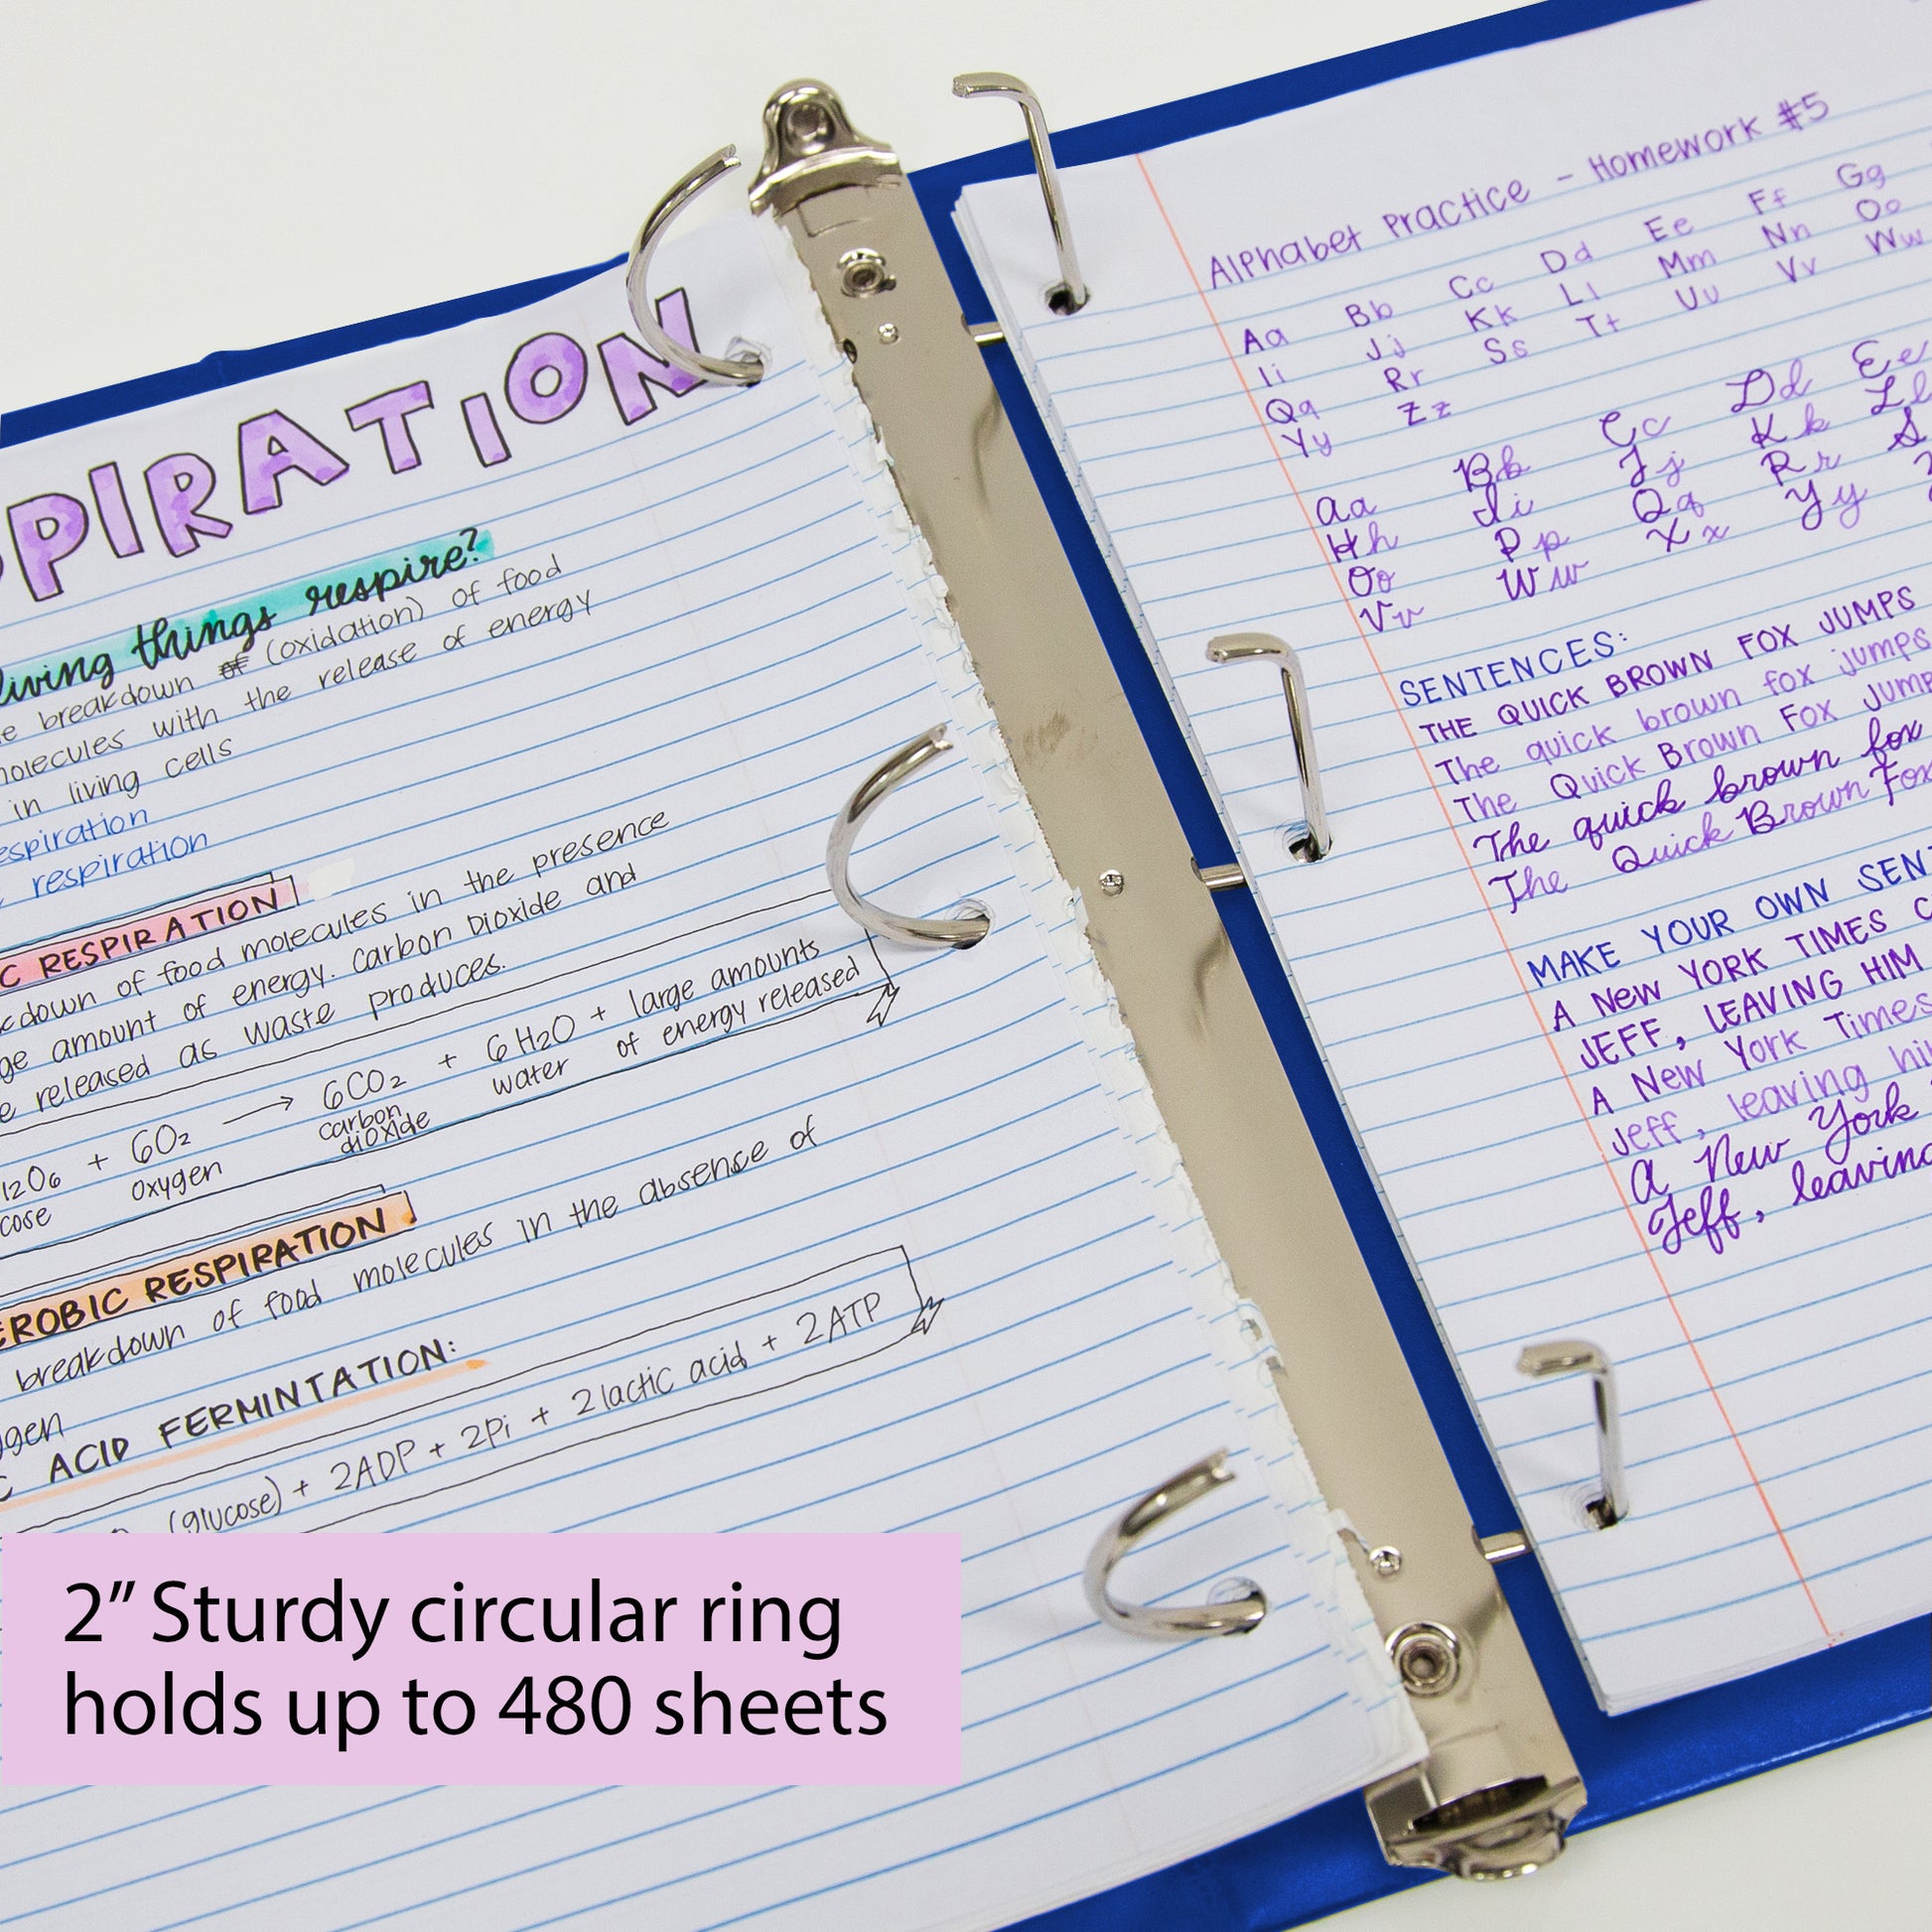 PIRATION
living things respire?
breakdown of (oxidation) of food
molecules with the release of energy
in living cells
espiration
respiration
C RESPIRATION
kdown of food molecules in the presence
ge amount of energy. Carbon Dioxide and
e released as waste produces.
12O6 + 6O2 → 6CO2 + 6H2O + large amounts
cose oxygen carbon dioxide water of energy released
EROBIC RESPIRATION
breakdown of food molecules in the absence of
ygen
C ACID FERMINTATION:
(glucose) + 2ADP + 2Pi + 2 lactic acid + 2ATP
2” Sturdy circular ring
holds up to 480 sheets
Alphabet Practice - Homework #5
Aa Bb Cc Dd Ee Ff Gg
Ii Jj Kk Ll Mm Nn Oo
Qq Rr Ss Tt Uu Vv Ww
Yy Zz
Aa Bb Cc Dd Ee
Hh Ii Jj Kk Ll
Oo Pp Qq Rr S
Vv Ww Xx Yy
SENTENCES:
THE QUICK BROWN FOX JUMPS
The quick brown fox jumps
The Quick Brown Fox Jump
The quick brown fox
The Quick Brown Fox
MAKE YOUR OWN SENT
A NEW YORK TIMES C
JEFF, LEAVING HIM
A New York Times
Jeff, leaving hi
A New York
Jeff, leaving